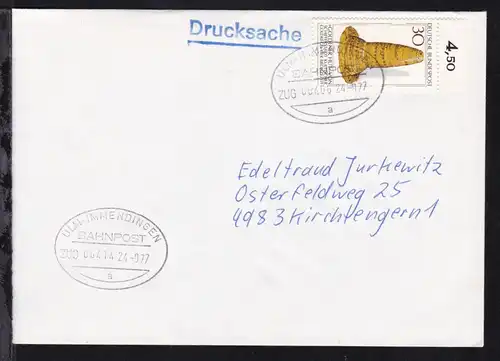 Drucksache
DEUTSCHE BUNDESPOST
30
4,50
ULM-IMMENDINGEN
BAHNPOST
ZUG
24-077
a
Edeltraud Jurkewitz
Osterfeldweg 25
4983 Kirchlengern 1
ULM-IMMENDINGEN
BAHNPOST
ZUG
24-077
a